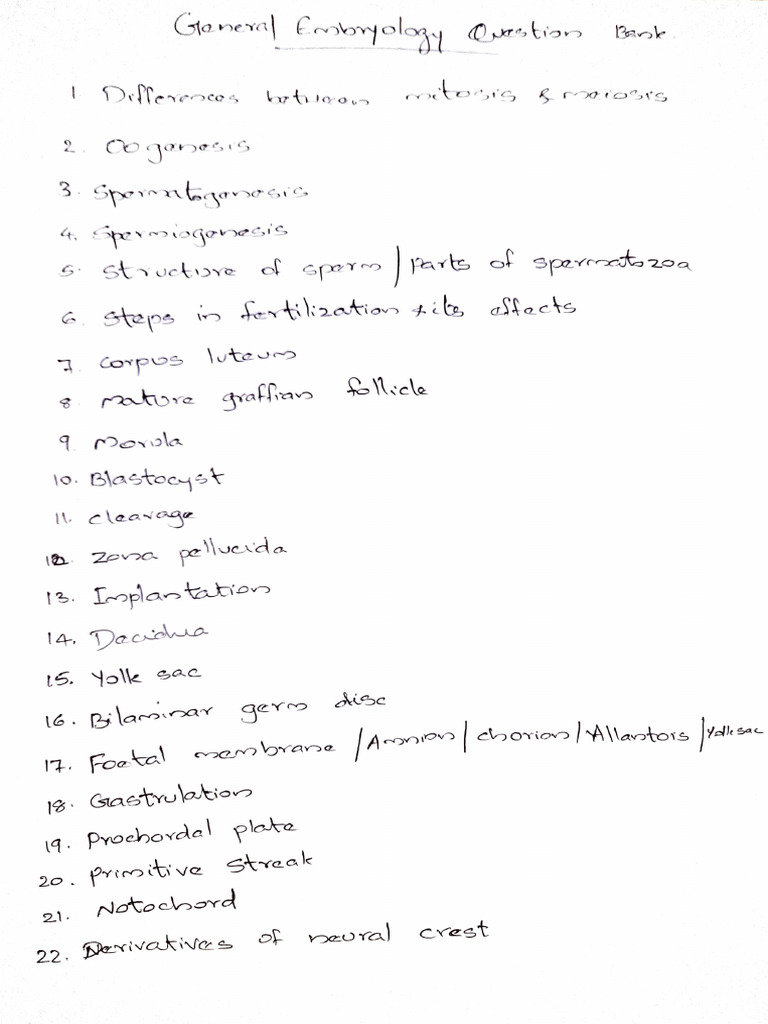 General Embryology Question Bank.
1 Differences between mitosis & meiosis
2. Oogenesis
3. Spermatogenesis
4. Spermiogenesis
5. Structure of sperm / parts of spermatozoa
6. Steps in fertilization & its effects
7. Corpus luteum
8 Mature graffian follicle
9 Morula
10. Blastocyst
11. cleavage
12. Zona pellucida
13. Implantation
14. Decidua
15. Yolk sac
16. Bilaminar germ disc
17. Foetal membrane / Amnion / chorion / Allantois / Yolk sac
18. Gastrulation
19. Prochordal plate
20. Primitive streak
21. Notochord
22. Derivatives of neural crest